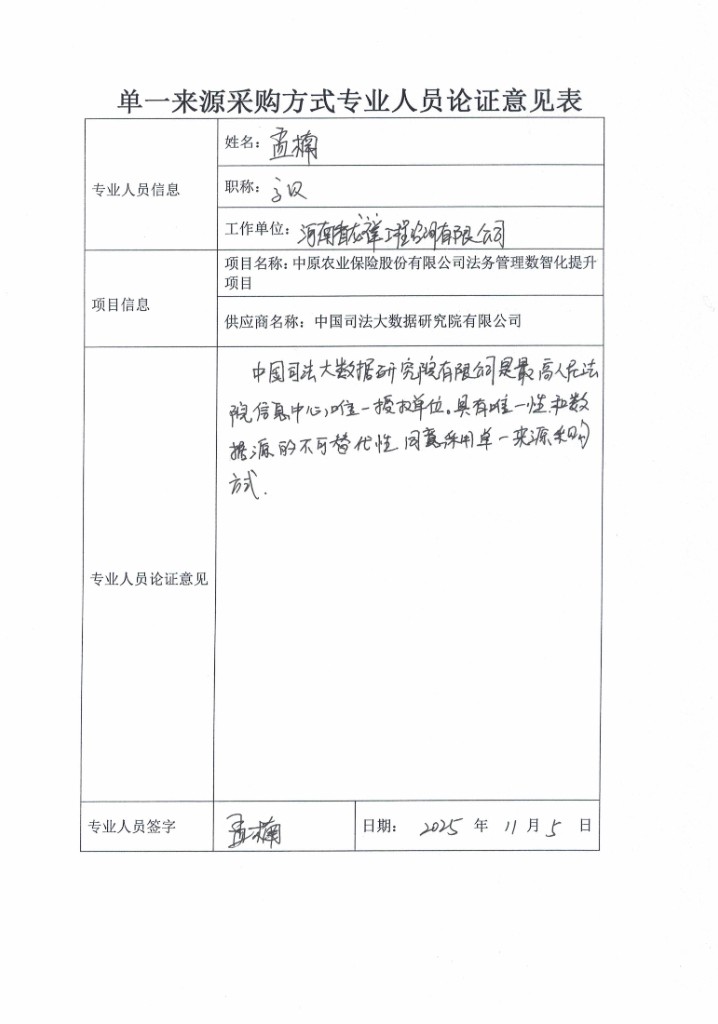 单一来源采购方式专业人员论证意见表
专业人员信息
姓名：孟楠
职称：高级
工作单位：河南省龙祥工程咨询有限公司
项目信息
项目名称：中原农业保险股份有限公司法务管理数智化提升
项目
供应商名称：中国司法大数据研究院有限公司
专业人员论证意见
中国司法大数据研究院有限公司是最高人民法
院信息中心唯一授权单位。具有唯一性和数
据源的不可替代性 同意采用单一来源采购
方式.
专业人员签字
孟楠
日期： 2025 年 11 月 5 日